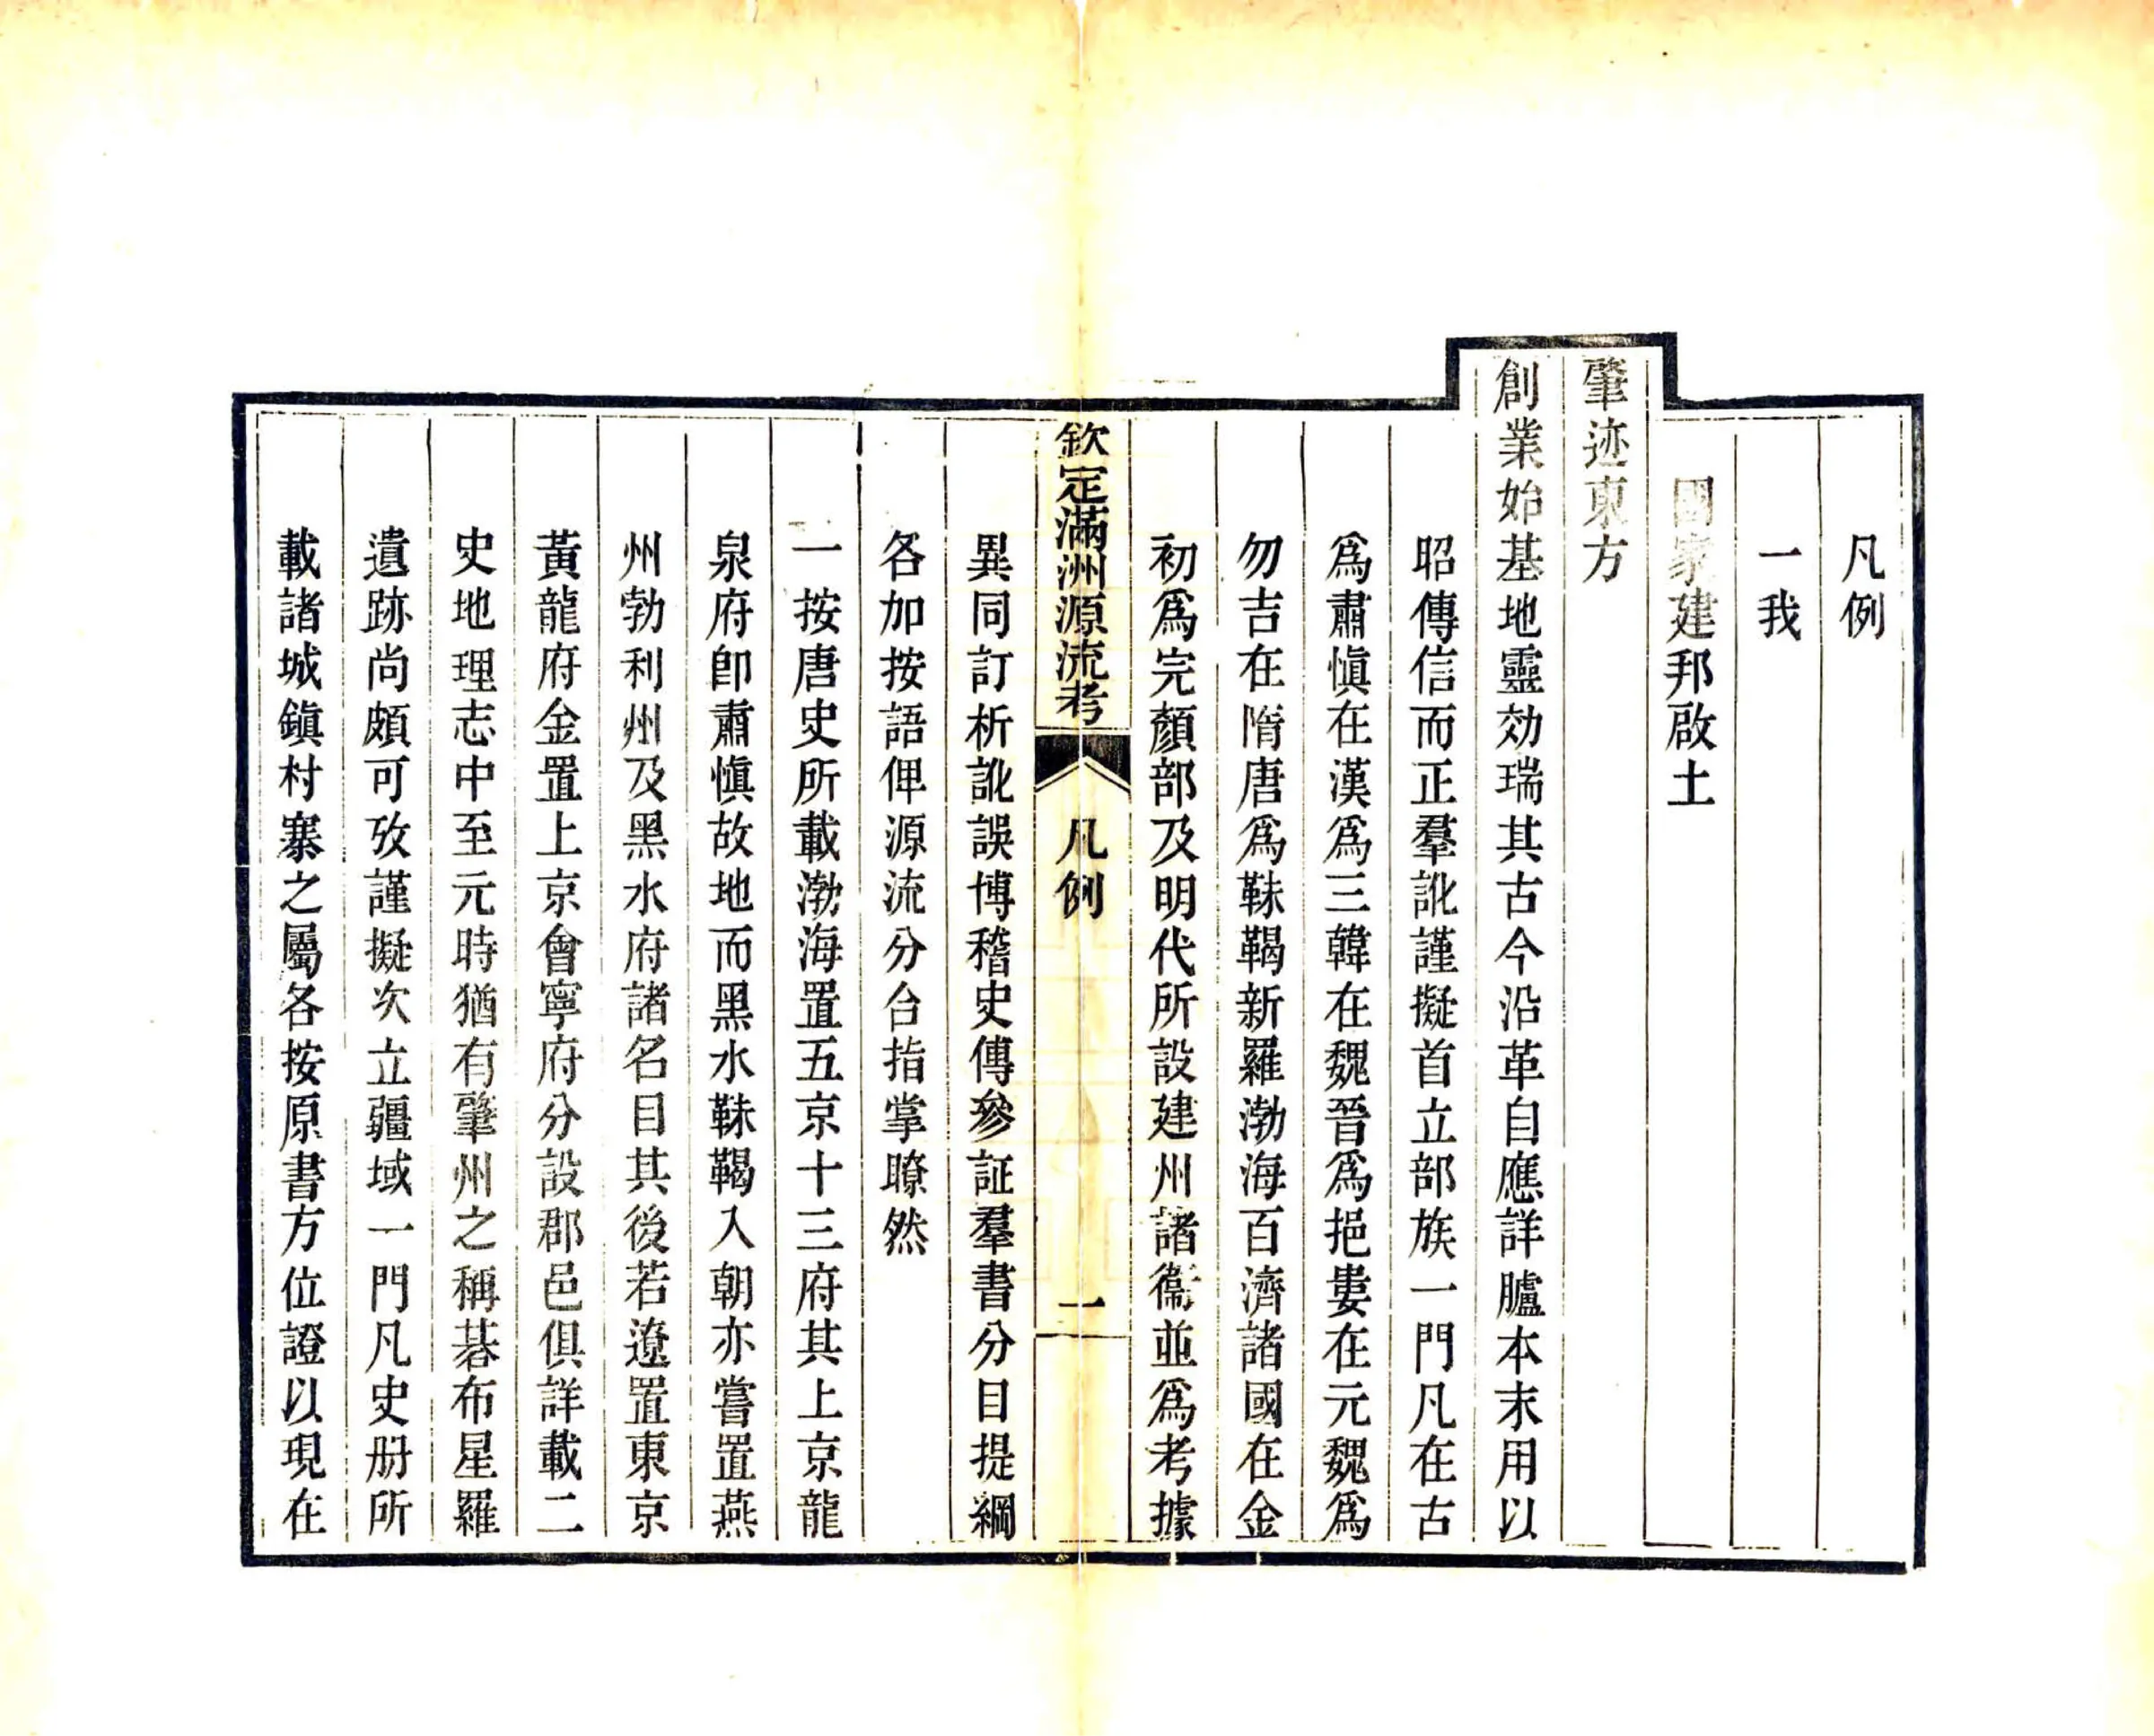 凡例
一我
國家建邦啟土
肇迹東方
創業始基地靈効瑞其古今沿革自應詳臚本末用以
昭傳信而正羣訛謹擬首立部族一門凡在古
爲肅愼在漢爲三韓在魏晉爲挹婁在元魏爲
勿吉在隋唐爲靺鞨新羅渤海百濟諸國在金
初爲完顏部及明代所設建州諸衞並爲考據
欽定滿洲源流考
凡例
一
異同訂析訛誤博稽史傳參証羣書分目提綱
各加按語俾源流分合指掌瞭然
一按唐史所載渤海置五京十三府其上京龍
泉府卽肅愼故地而黑水靺鞨入朝亦嘗置燕
州勃利州及黑水府諸名目其後若遼置東京
黃龍府金置上京會寧府分設郡邑俱詳載二
史地理志中至元時猶有肇州之稱碁布星羅
遺跡尚頗可攷謹擬次立疆域一門凡史册所
載諸城鎭村寨之屬各按原書方位證以現在